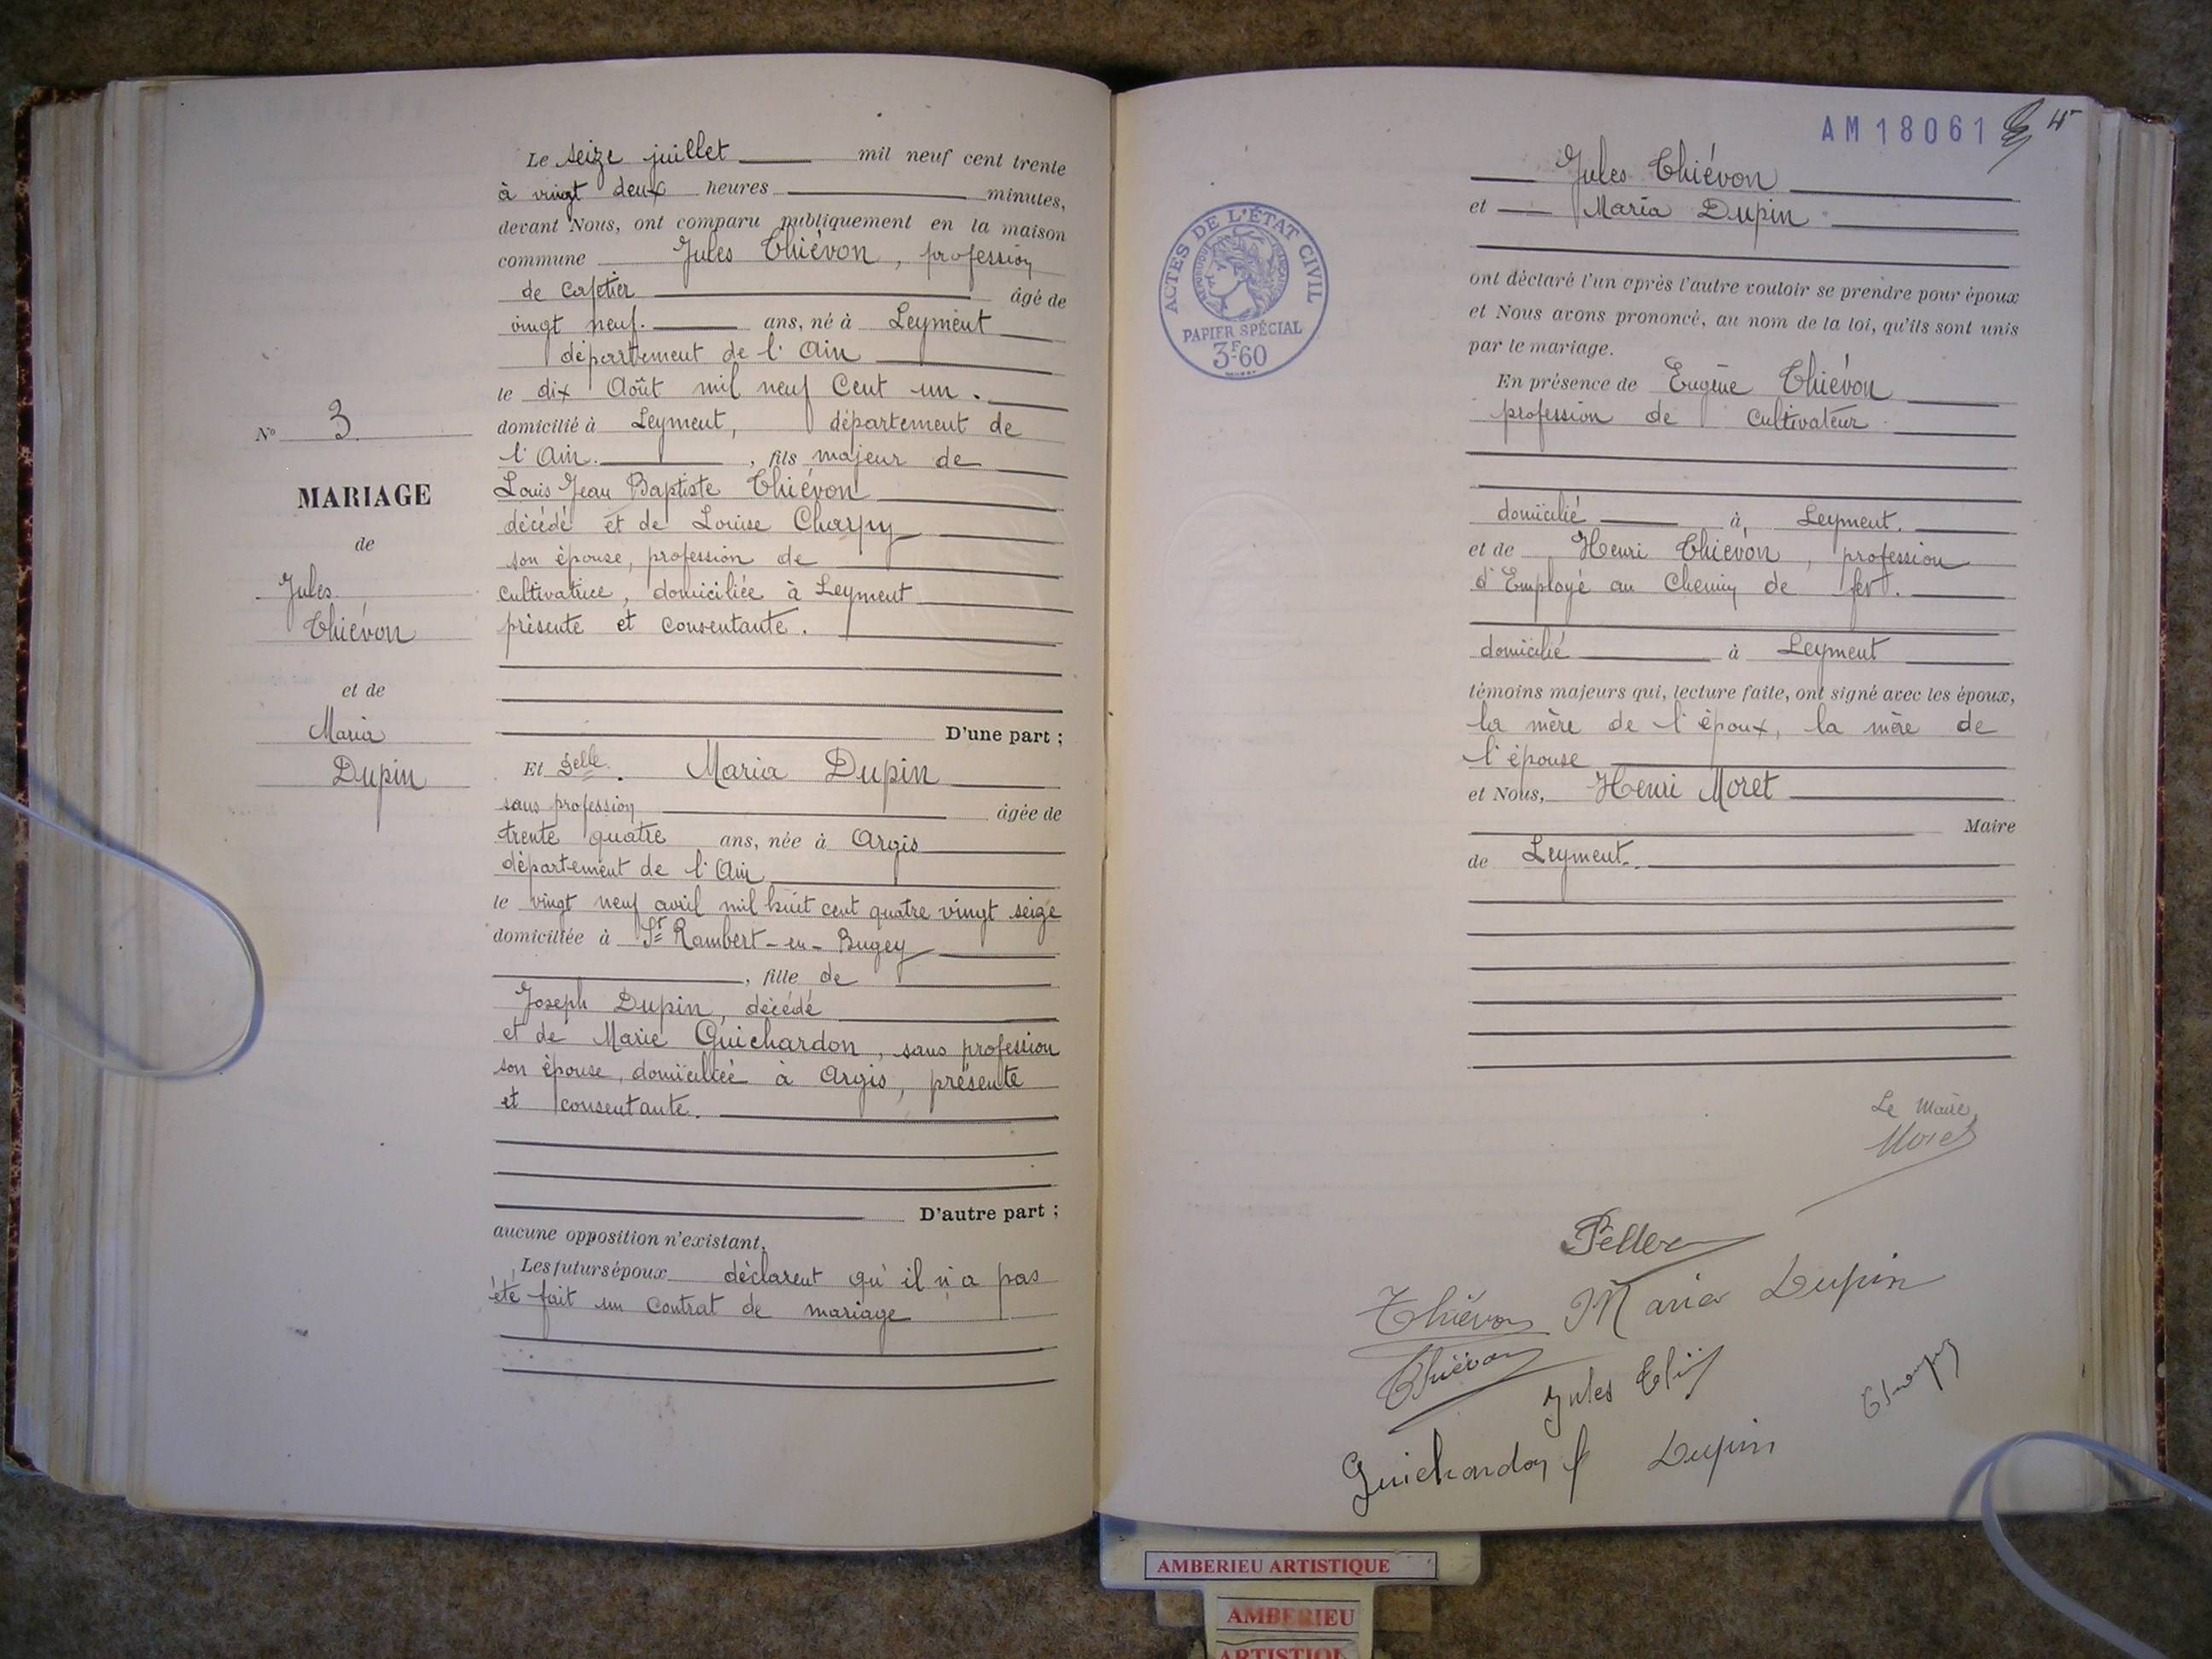 N° 3
MARIAGE
de
Jules
Thiévon
et de
Maria
Dupin
Le seize juillet mil neuf cent trente
à vingt deux heures minutes,
devant Nous, ont comparu publiquement en la maison
commune Jules Thiévon, profession
de cafetier âgé de
vingt neuf. ans, né à Leyment
département de l'Ain
le dix Août mil neuf Cent un.
domicilié à Leyment, département de
l'Ain. , fils majeur de
Louis Jean Baptiste Thiévon
décédé et de Louise Charpy
son épouse, profession de
cultivatrice, domiciliée à Leyment
présente et consentante.
D'une part ;
Et Delle. Maria Dupin
sans profession âgée de
trente quatre ans, née à Argis
département de l'Ain
le vingt neuf avril mil huit cent quatre vingt seize
domiciliée à St Rambert-en-Bugey
, fille de
Joseph Dupin, décédé
et de Marie Guichardon, sans profession
son épouse, domiciliée à Argis, présente
et consentante.
D'autre part ;
aucune opposition n'existant.
Les futurs époux déclarent qu'il n'a pas
été fait un contrat de mariage
AM18061
ACTES DE L'ÉTAT CIVIL
RÉPUBLIQUE FRANÇAISE
PAPIER SPÉCIAL
3F60
Jules Thiévon
et Maria Dupin
ont déclaré l'un après l'autre vouloir se prendre pour époux
et Nous avons prononcé, au nom de la loi, qu'ils sont unis
par le mariage.
En présence de Eugène Thiévon
profession de Cultivateur
domicilié à Leyment.
et de Henri Thiévon, profession
d'Employé au Chemin de fer.
domicilié à Leyment
témoins majeurs qui, lecture faite, ont signé avec les époux,
la mère de l'époux, la mère de
l'épouse
et Nous, Henri Moret
Maire
de Leyment.
Le Maire,
Moret
Thiévon Maria Dupin
Thiévon
Jules
Guichardon f Dupin
AMBERIEU ARTISTIQUE
AMBERIEU
ARTISTIQUE